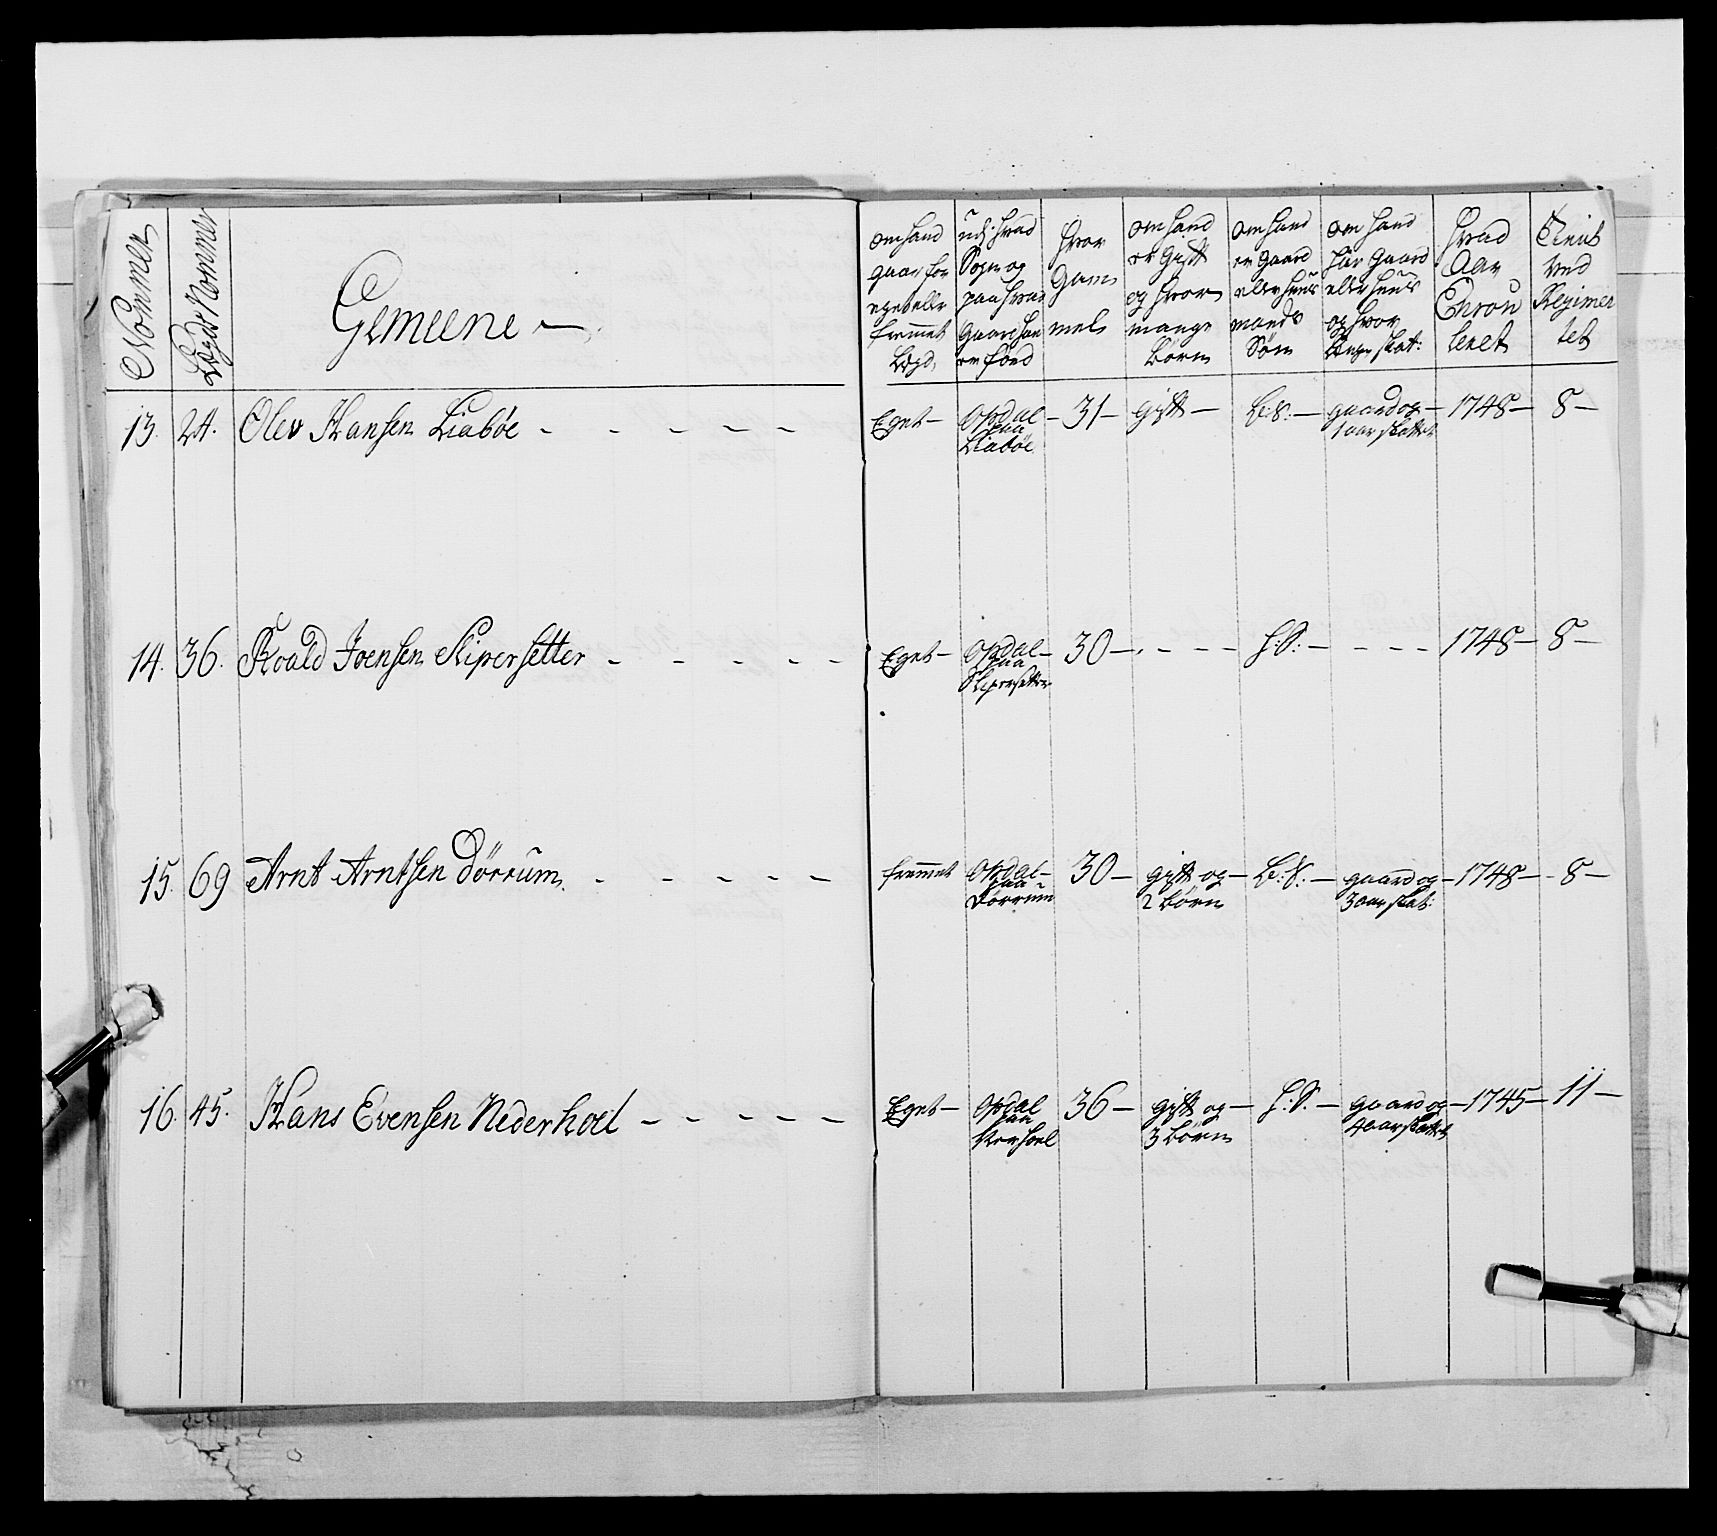 Nommer
Lægds Nommer
Gemeene
om hand gaar for eget eller fremmet Lægd.
udj hvad Sogn og paa hvad Gaard han er fød
hvor Gammel
om hand er Gift og hvor mange Børn
om hand er Gaard eller huus mands Søn
om hand har Gaard eller huus og hvor lenge skat:
hvad Aar Enroulleret
Tient ved Regimentet
13. 24. Olev Hansen Liabøe - - - - - Eget - Opdal paa Liabøe - 31 - gift - B:S: - gaard og 1 aar skattet - 1748 - 8 -
14. 36. Roald Joensen Skipersetter - - - - - Eget - Opdal paa Skipersetter - 30 - - - - h:S: - - - - 1748 - 8 -
15. 69 Arnt Arntsen Dörrum. - - - - - fremmet Opdal paa Dörrum - 30 - gift og 2 børn - B:S: - gaard og 3 aar skat: - 1748 - 8 -
16. 45. Hans Evensen Nederhoel - - - - - Eget - Opdal paa Nerhoel 36 - gift og 3 børn - h:S. - gaard og 4 aar skattet - 1745 - 11 -